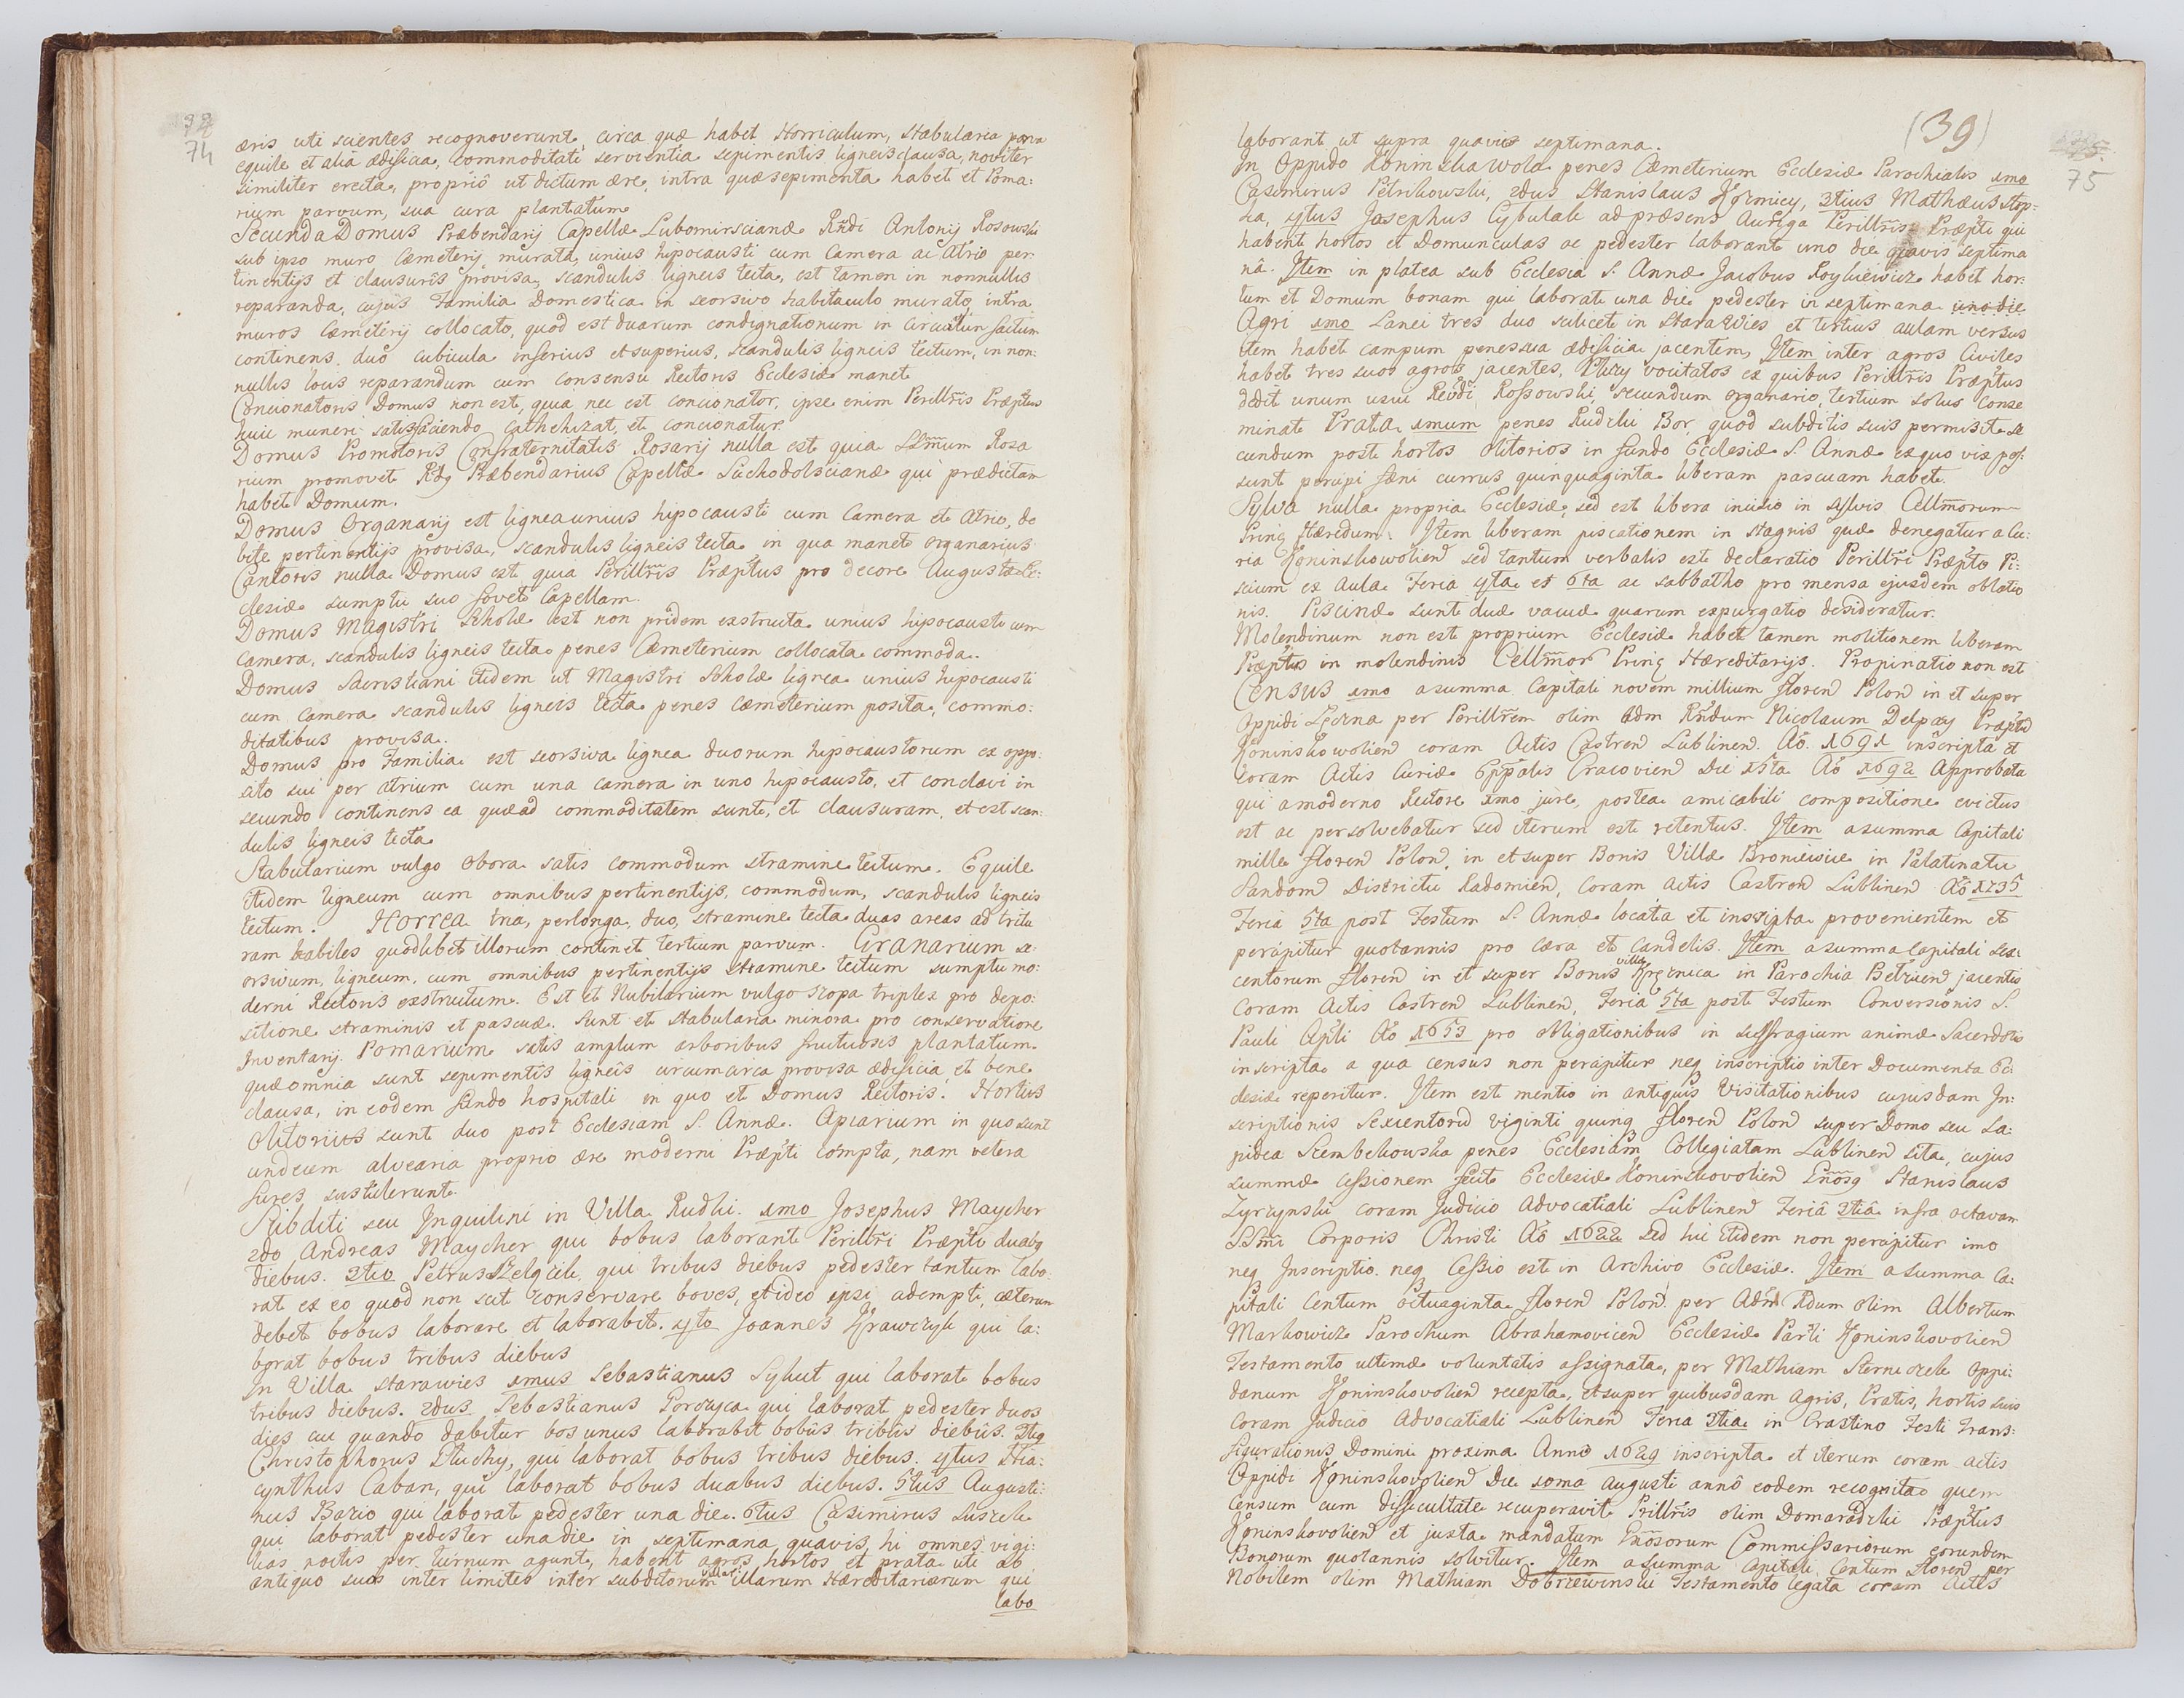 74
æris uti scientes recognoverunt, circa quæ habet Horriculum, Stabularia parva
equile et alia ædificia, commoditati servientia sepimentis ligneis clausa, noviter
similiter erecta, propriô ut dictum ære, intra quæ sepimenta habet et Poma:
rium parvum, sua cura plantatum
Secunda Domus Præbendarij Capellæ Lubomirscianæ Rñdi Antonij Rosowski
sub ipso muro Cæmeterij murata, unius hipocausti cum Camera ac Atrio per:
tinentijs et clausuris provisa, scandulis ligneis tecta, est tamen in nonnullis
reparanda, cujus Familia Domestica in seorsivo habitaculo murato, intra
muros Cæmeterij collocato, quod est duarum condignationum in circulum factum
continens duo cubicula inferius et superius, scandulis ligneis tectum, in non:
nullis locis reparandum cum consensu Rectoris Ecclesiæ manet
Concionatoris Domus non est, quia nec est concionator, ipse enim Perillris Præptus
huic muneri satisfaciendo Cathehizat, et concionatur.
Domus Promotoris Confraternitatis Rosarij nulla est quia SSmum Rosa
rium promovet Rdq Præbendarius Capellæ Suchodolscianæ qui prædictam
habet Domum.
Domus Organarij est lignea unius hipocausti cum Camera et Atrio, de
bite pertinentijs provisa, scandulis ligneis tecta in qua manet Organarius
Cantoris nulla Domus est quia Perillris Præptus pro decore Augustæ Ec:
clesiæ sumptu suo fovet Capellam.
Domus Magistri Scholæ est non pridem exstructa unius hipocausti cum
Camera, scandulis ligneis tecta penes Cæmeterium collocata commoda.
Domus Sacristiani itidem ut Magistri Scholæ lignea unius hipocausti
cum Camera scandulis ligneis tecta penes Cæmeterium posita, commo:
ditatibus provisa.
Domus pro Familia est seorsiva lignea duorum hipocaustorum ex oppo:
sito sui per atrium cum una camera in uno hipocausto, et conclavi in
secundo continens ea quæ ad commoditatem sunt, et clausuram, et est scan:
dulis ligneis tecta
Stabularium vulgo Obora satis commodum stramine tectum. Equile
itidem ligneum cum omnibus pertinentijs, commodum, scandulis ligneis
tectum. Horrea tria, perlonga duo, stramine tecta duas areas ad tritu
ram habiles quodlibet illorum continet tertium parvum. Granarium se:
orsivum, ligneum, cum omnibus pertinentijs stramine tectum sumptu mo:
derni Rectoris exstructum. Est et Nubilarium vulgo szopa triplex pro depo:
sitione straminis et pascuæ. Sunt et stabularia minora pro conservatione
Inventarij. Pomarium satis amplum arboribus fructuosis plantatum
quæ omnia sunt sepimentis ligneis circumcirca provisa ædificia et bene
clausa, in eodem fundo hospitali in quo et Domus Rectoris. Hortius
Olitorius sunt duo post Ecclesiam S. Annæ. Apiarium in quo sunt
undecim alvearia proprio ære moderni Præpti compta, nam vetera
fures sustulerunt.
Subditi seu Inquilini in Villa Rudki. 1mo Josephus Maycher
2do Andreas Maycher qui bobus laborant Perillri Præpto duabq
diebus. 3tio Petrus Szelgcik, qui tribus diebus pedester tantum labo
rat ex eo quod non scit conservare boves, et ideo ipsi adempti, æterum
debet bobus laborare et laborabit. 4to Joannes Krawczyk qui la:
borat bobus tribus diebus
In Villa Starawies 1mus Sebastianus Sykut qui laborat bobus
tribus diebus. 2dus Sebastianus Porczyca qui laborat pedester duos
dies cui quando dabitur bos unus laborabit bobus tribus diebus. 3tiq
Christophorus Dluchy, qui laborat bobus tribus diebus. 4tus Hia:
cynthus Caban, qui laborat bobus duabus diebus. 5tus Augusti:
nus Bazio qui laborat pedester una die. 6tus Casimirus Suszek
qui laborat pedester una die in septimana quavis, hi omnes vigi:
lias noctis per turnum agunt, habent agros hortos et prata uti ab
antiquo suos inter limites inter subditorum Villarum Hæreditariarum qui
labo
(39)
75
laborant ut supra quavis septimana.
In Oppido Koninska Wola penes Cæmeterium Ecclesiæ Parochialis 1mo
Casimirus Petrikowski, 2dus Stanislaus Kornicy, 3tius Mathæus Stop:
ka, 4tus Josephus Cybulak ad præsens Auriga Perillris Præpti qui
habent hortos et Domunculas ac pedester laborant uno die quavis septima
nâ. Item in platea sub Ecclesia S. Annæ Jacobus Roykiewicz habet hor:
tum et Domum bonam qui laborat una die pedester in septimana uno die
Agri 1mo Lanei tres duo scilicet in Stara Wies et tertius aulam versus
item habet campum penes sua ædificia jacentem, Item inter agros Civiles
habet tres suos agros jacentes, vocitatos ex quibus Perillris Præptus
dedit unum usui Rendi Rossowski, secundum organario, tertium solus conse
minat Prata 1mum penes Rudzki Bor, quod subditis suis permisit se
cundum post hortos olitorios in fundo Ecclesiæ S. Annæ ex quo vix pos:
sunt percipi fæni currus quinquaginta liberam pascuam habet.
Sylva nulla propria Ecclesiæ, sed est libera incisio in sylvis Cellmorum
Princ Hæredum. Item liberam piscationem in stagnis quæ denegatur a Cu:
ria Koninskowolien sed tantum verbalis est declaratio Perillri Præpto Pi:
scium ex Aula Feria 4ta et 6ta ac sabbatho pro mensa ejusdem oblatio
nis. Piscinæ sunt duæ vacuæ quarum expurgatio desideratur.
Molendinum non est proprium Ecclesiæ habet tamen molitionem liberam
Præptus in molendinis Cellmor Princ Hæreditarijs. Propinatio non est
Census 1mo a summa Capitali novem millium floren Polon in et super
Oppidi Leczna per Perillrem olim Adm Rndum Nicolaum Delpacy Præptu
Koninskowolien coram Actis Castren Lublinen. Ao. 1691 inscripta et
coram Actis Curiæ Eppalis Cracovien Die 15ta Ao 1692 Approbata
qui a moderno Rectore 1mo jure, postea amicabili compositione evictus
est ac persolvebatur sed iterum est retentus. Item a summa Capitali
mille floren Polon, in et super Bonis Villæ Bronicisice in Palatinatu
Sandom Districtu Radomien, Coram actis Castren Lublinen Ao 1735
Feria 5ta post Festum S. Annæ locata et inscripta provenientem et
percipitur quotannis pro cæra et candelis. Item a summa Capitali sex:
centorum floren in et super Bonis villæ Kręznica in Parochia Betzicen jacentis
Coram Actis Castren Lublinen, Feria 5ta post Festum Conversionis S.
Pauli Apli Ao 1653 pro obligationibus in suffragium animæ Sacerdotis
inscripta a qua census non percipitur neq inscriptio inter Documenta Ec:
clesiæ reperitur. Item est mentio in antiquis Visitationibus cujusdam In:
scriptionis Sexcentoru viginti quinq floren Polon super Domo seu La:
pidea Szembekowska penes Ecclesiam Collegiatam Lublinen sita, cujus
summæ cessionem fecit Ecclesiæ Koninskovolien Gnosq Stanislaus
Zyrzynski coram Judicio Advocatiali Lublinen Feriâ 3tiâ infra octavam
SSmi Corporis Christi Ao 1622 sed hic itidem non percipitur imo
neq Inscriptio neq Cessio est in Archivo Ecclesiæ. Item a summa Ca:
pitali Centum octuaginta floren Polon per Adm Rdum olim Albertum
Markowicz Parochum Abrahamovicen Ecclesiæ Parli Koninskovolien
Testamento ultimæ voluntatis assignata, per Mathiam Sterniczek Oppi:
danum Koninskovolien recepta, et super quibusdam Agris, Pratis, hortis suis
Coram Judicio Advocatiali Lublinen Feria 3tia in Crastino Festi Trans:
figurationis Domini proxima Anno 1629 inscripta et iterum coram actis
Oppidi Koninskovolien Die 10ma Augusti annô eodem recognita quem
Censum cum difficultate recuperavit Prillris olim Domaradzki Præptus
Koninskovolien et juxta mandatum Gnosorum Commissariorum eorundem
Bonorum quotannis solvitur. Item a summa Capitali Centum Floren per
Nobilem olim Mathiam Dobrzewinski Testamento legata coram Actis